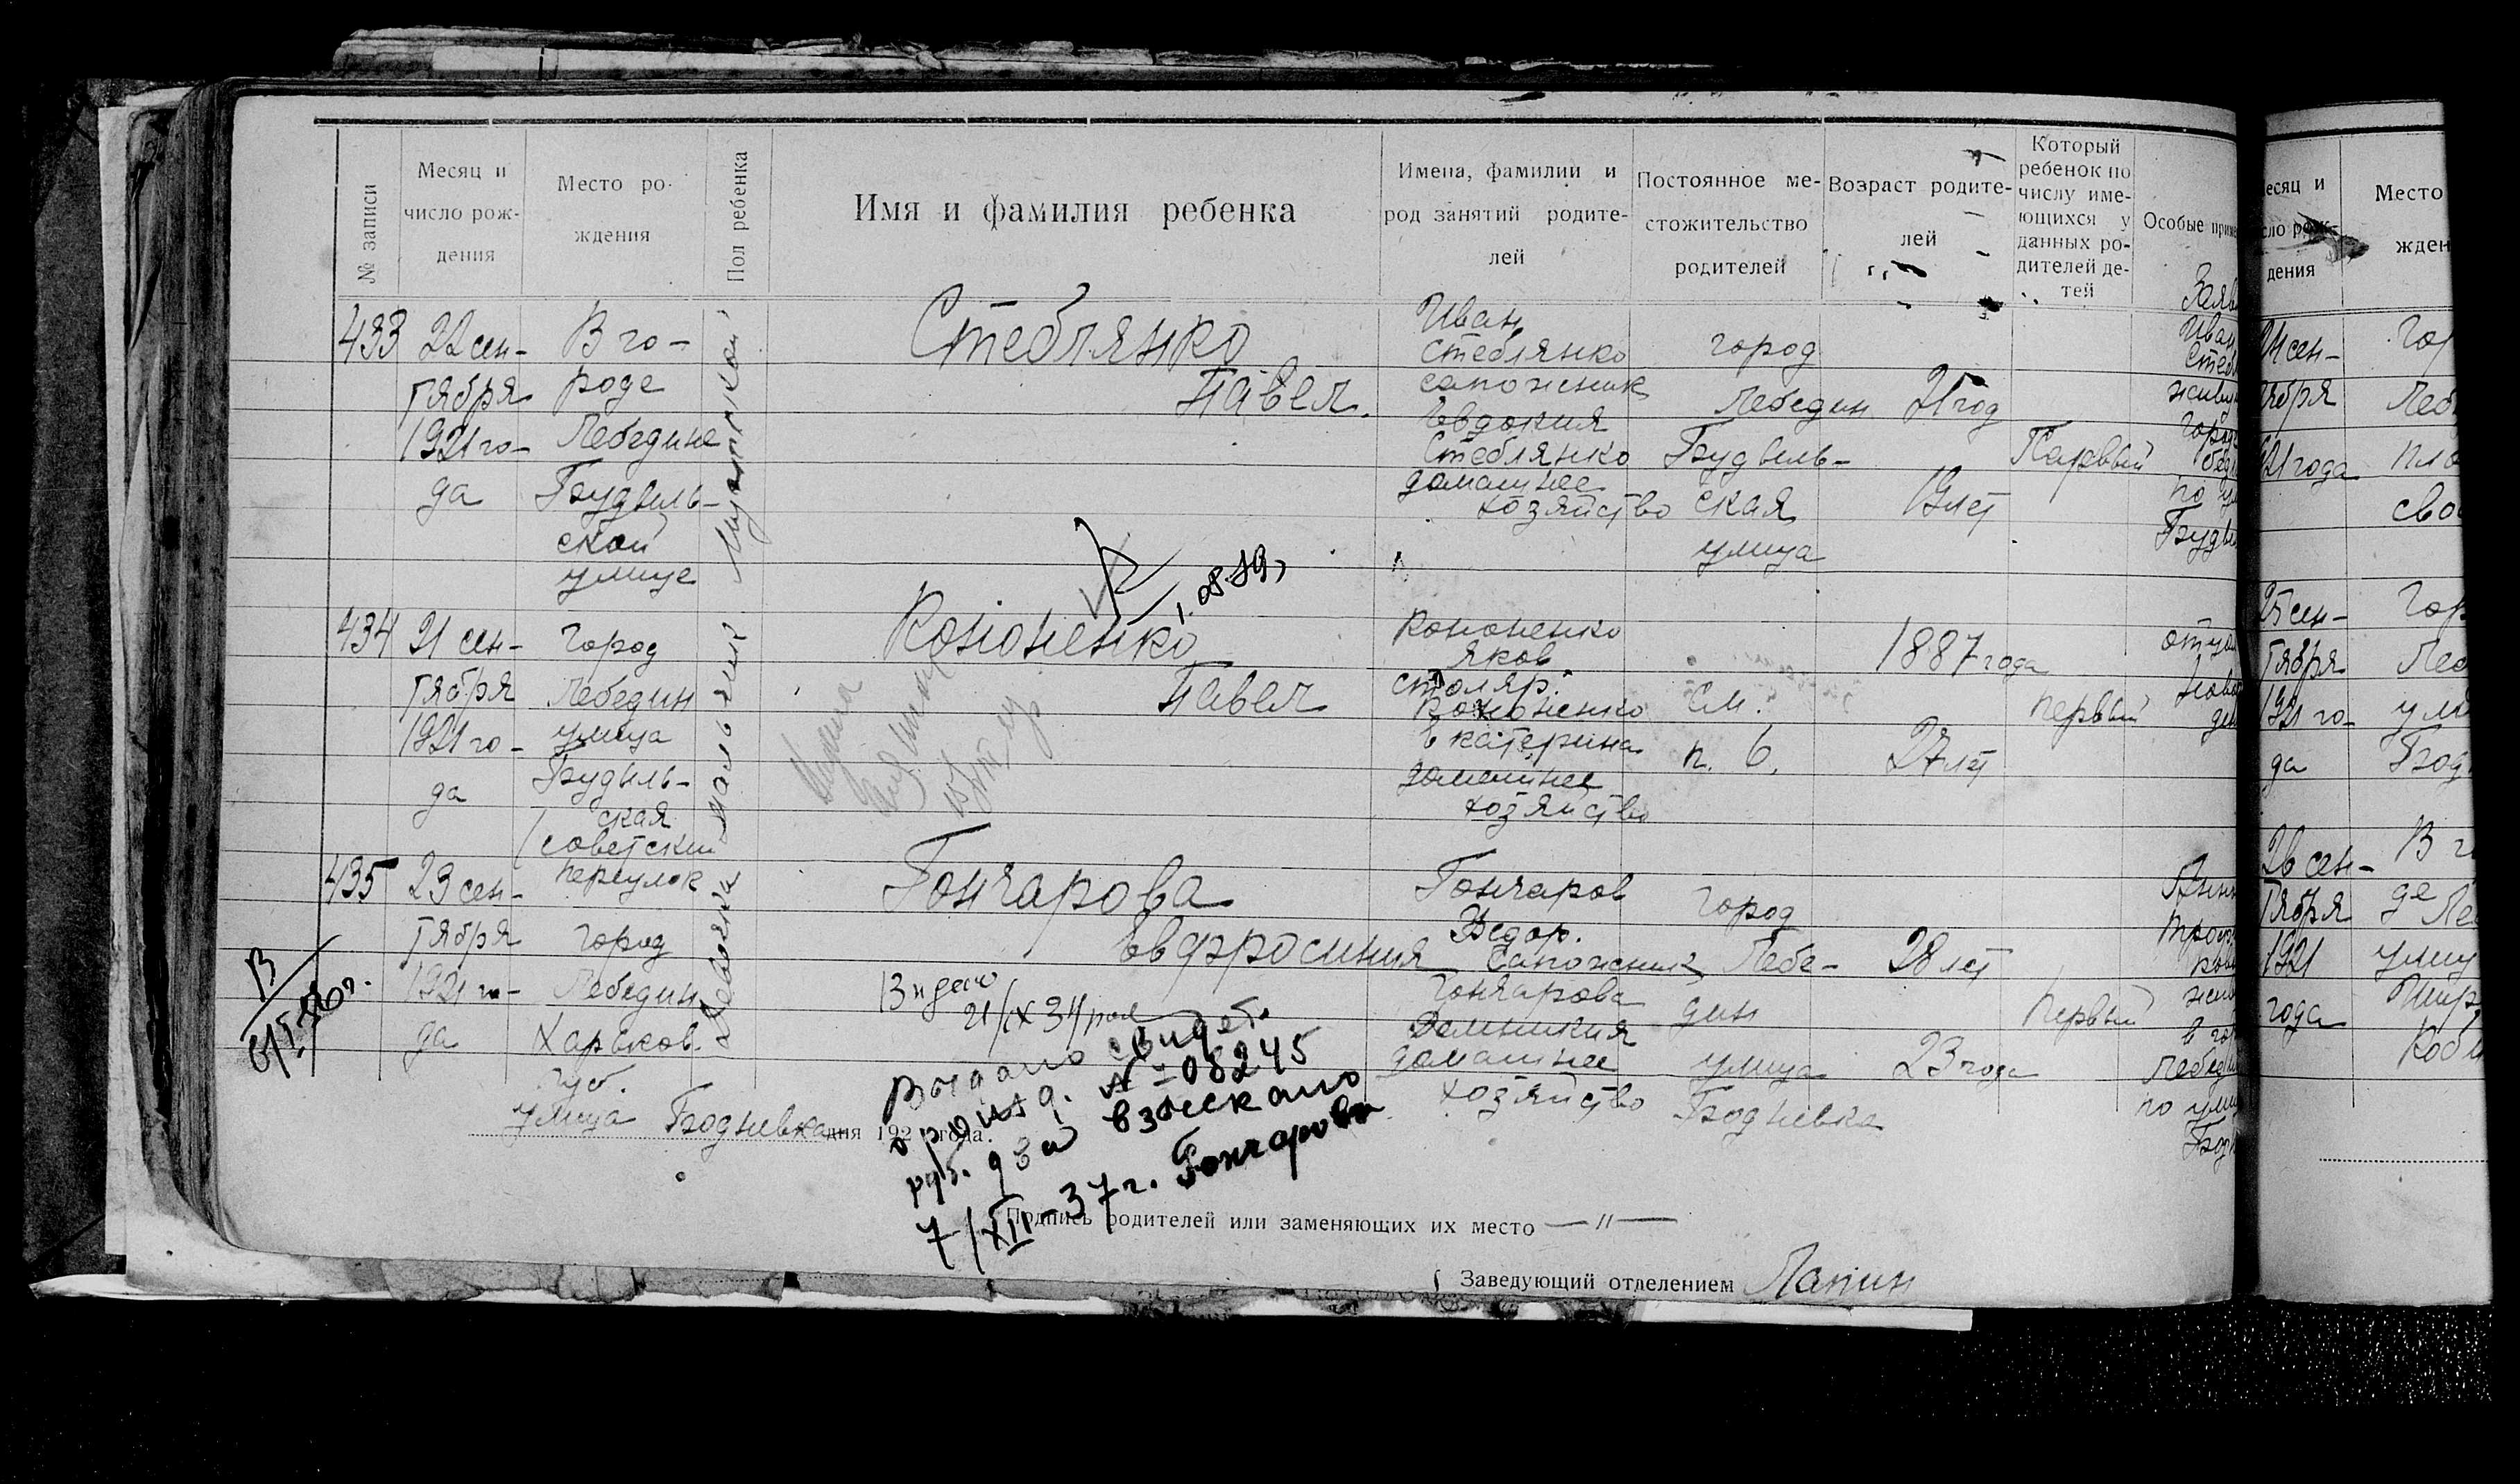 № записи
Месяц и
число рож-
дения
Место ро-
ждения
Пол ребенка
Имя и фамилия ребенка
Имена, фамилии и
род занятий родите-
лей
Постоянное ме-
стожительство
родителей
Возраст родите-
лей
Который
ребенок по
числу име-
ющихся у
данных ро-
дителей де-
тей
Особые приме
433
22 сен-
тября
1921 го-
да
В го-
роде
Лебедине
Будыль-
ской
улице
Мужской
Стеблянко
Павел.
Иван
Стеблянко
сапожник
Евдокия
Стеблянко
домашнее
хозяйство
город
Лебедин
Будыль-
ская
улица
21 год
19 лет
Первый
Иван
434
21 сен-
тября
1921 го-
да
город
Лебедин
улица
Будыль-
ская
мальчик
Кононенко
Павел
Кононенко
Яков
столяр.
Кононенко
Екатерина
домашнее
хозяйство
см.
п. 6.
1887 года
27 лет
первый
435
23 сен-
тября
1921 го-
да
(советский
переулок
город
Лебедин
Харьков.
губ.
улица Бодневка
девочка
Гончарова
Евфросиния
Гончаров
Федор.
Сапожник
Гончарова
домашнее
хозяйство
город
Лебе-
дин
улица
Бодневка
28 лет
23 года
первый
в гор
Лебед
по ули
21/IX 34
Выдано свидет.
о рожд. № 08245
руб. два взыскано
7/XII-37 г. Гончарова
дня 192 года.
Подпись родителей или заменяющих их место — " —
Заведующий отделением Лапин
есяц и
сло рож-
дения
Место
жден
24 сен-
тября
1921 года
Гор
Леб
пло
сво
25 сен-
тября
1921 го-
да
Гор
Леб
ули
26 сен-
тября
1921
года
В г
де Ле
улиц